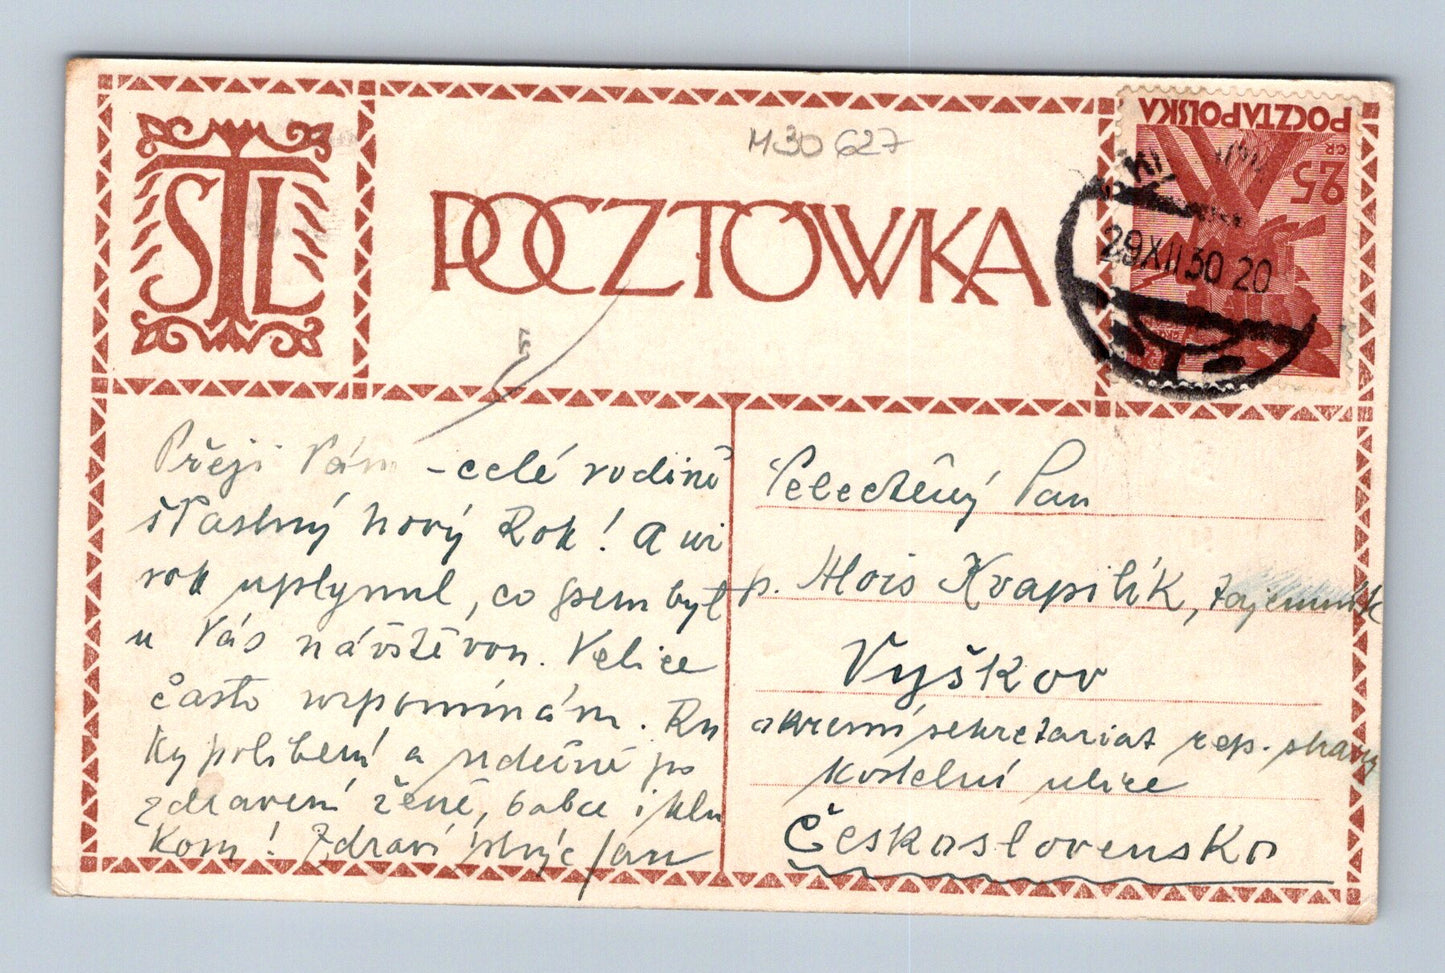 STL
M30 627
POCZTÓWKA
POCZTA POLSKA
25
GR
29 XII 30 20
Přeji Vám - celé rodině
šťastný nový Rok! A wi
rok uplynul, co jsem byl
u Vás návštěvou. Velice
často wzpomínám. Ru
ky políbení a srdečné po
zdravení ženě, babce i klu
kom! Zdraví strýc Jan
Velectěný Pan
p. Alois Kvapilík, tajemník
Vyškov
okresní sekretariat rep. strany
Kostelní ulice
Československo